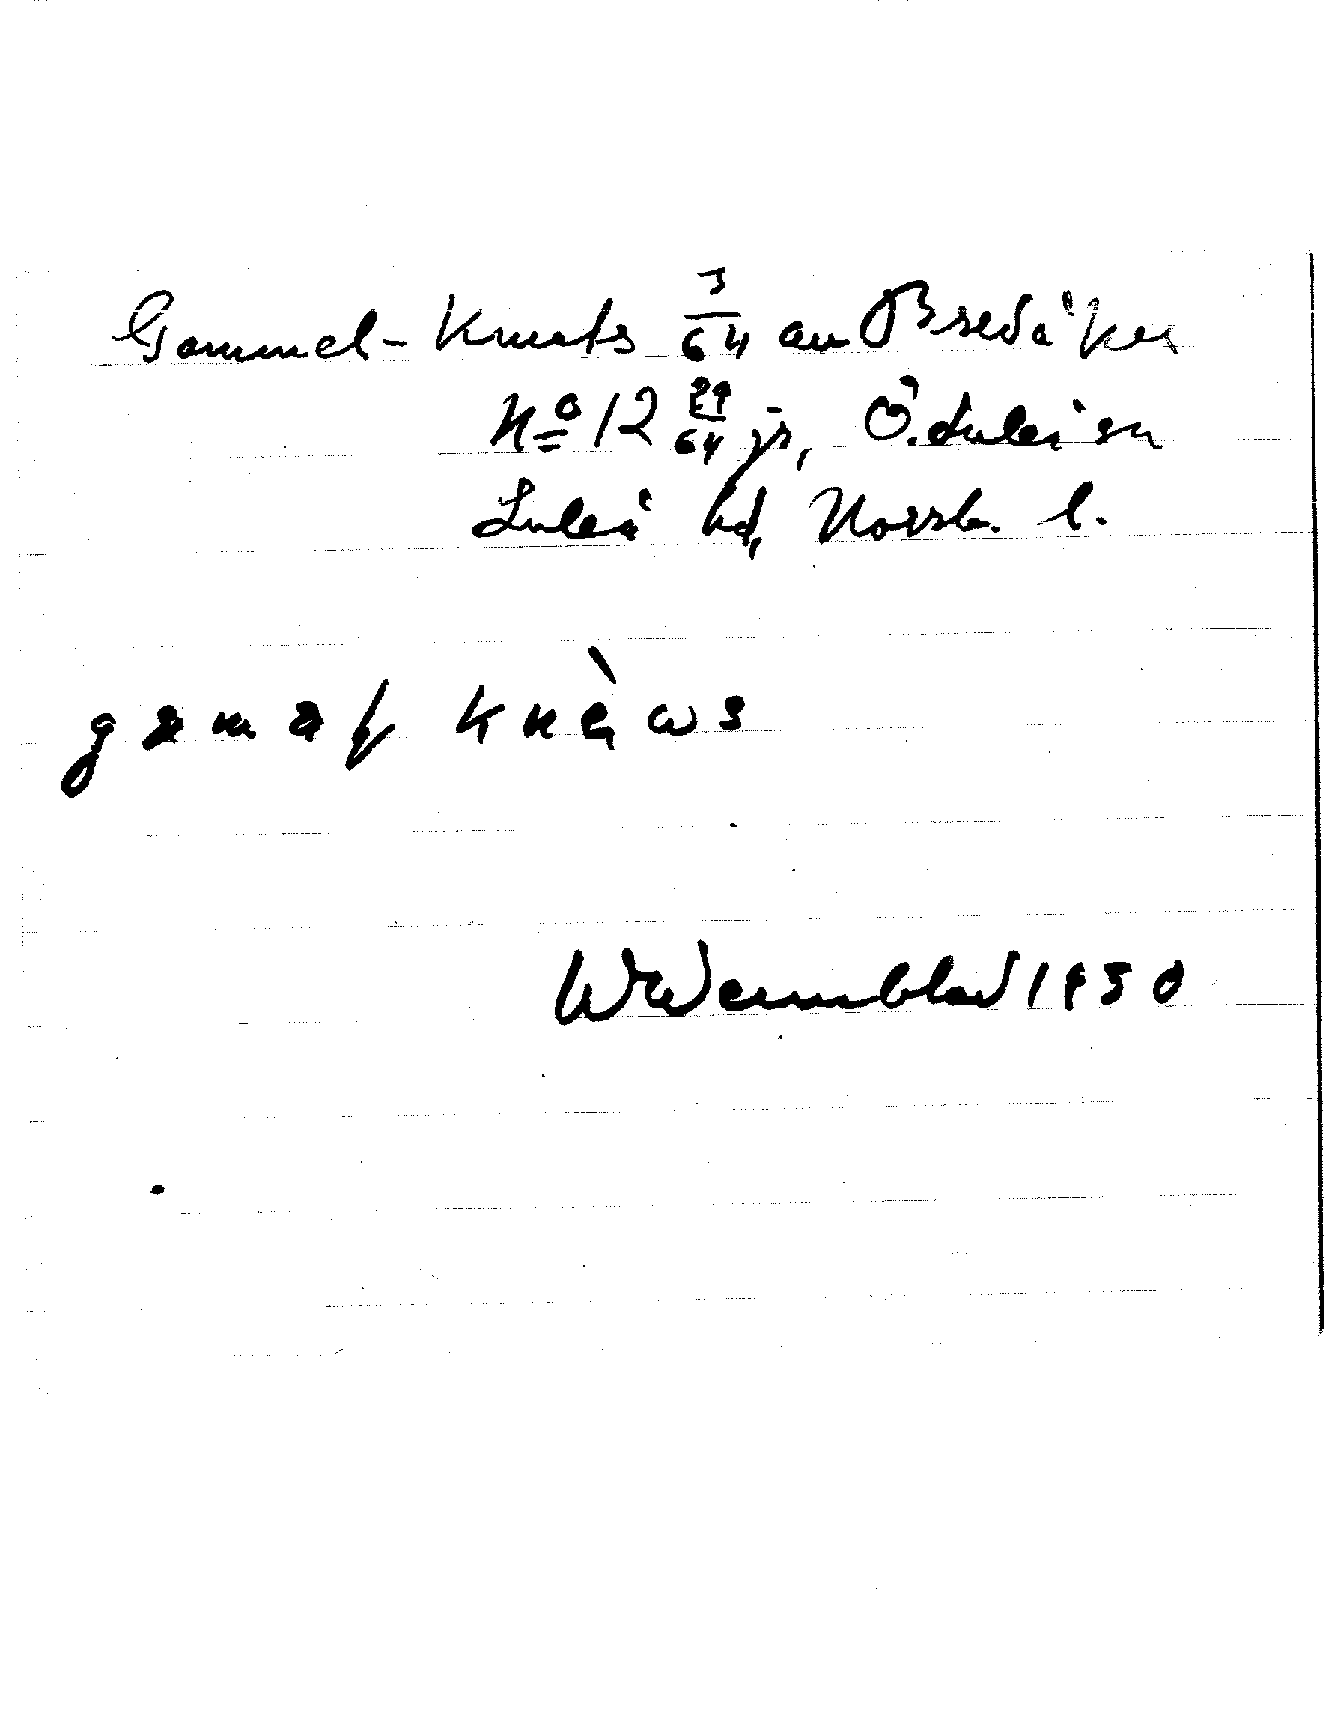 Gammel-Knuts 3/64 av Bredåker
No 12 29/64 jr, Ö. Luleå sn
Luleå hd, Norrb. l.
W Wennblad 1930